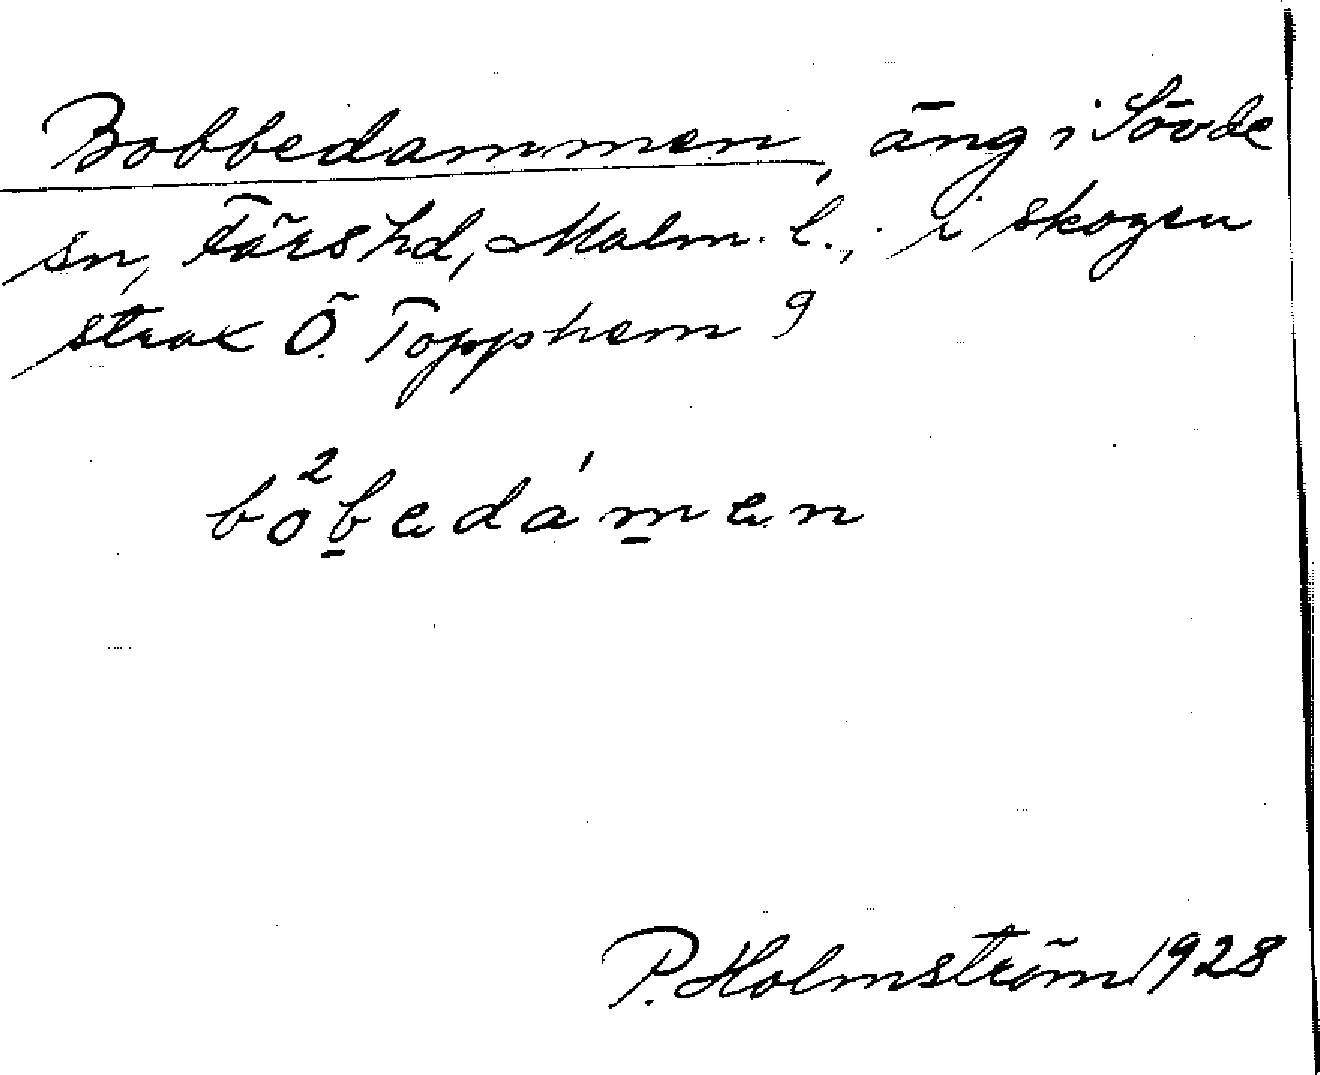 Bobbedammen, äng i Sövde
sn, Färs hd, Malm. l., i skogen
strax Ö. Topphem 9
bo²bedá'men
P. Holmström 1928